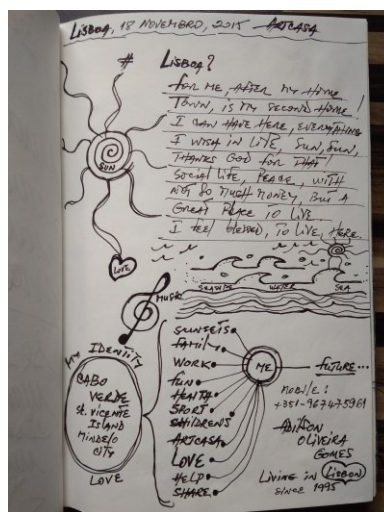 LISBOA, 18 NOVEMBRO, 2015 ARTCASA
# LISBOA?
FOR ME, AFTER MY HOME
TOWN, IS MY SECOND HOME!
I CAN HAVE HERE, EVERYTHING
I WISH IN LIFE, SUN, FUN,
THANKS GOD FOR THAT!
SOCIAL LIFE, PEACE, WITH
NOT SO MUCH MONEY, BUT A
GREAT PLACE TO LIVE
I FEEL BLESSED, TO LIVE, HERE.
SUN
LOVE
SEASIDE WATER SEA
MUSIC
MY IDENTITY
CABO
VERDE
ST. VICENTE
ISLAND
MINDELO
CITY
LOVE
SUNSETS
FAMILY
WORK
FUN
HEALTH
SPORT
CHILDRENS
ARTCASA
LOVE
HELP
SHARE
ME
FUTURE...
MOBILE:
+351-967475961
ADILSON
OLIVEIRA
GOMES
LIVING IN LISBON
SINCE 1995